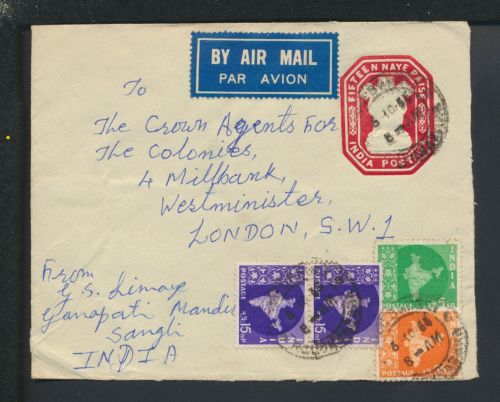 BY AIR MAIL
PAR AVION
FIFTEEN NAYE PAISE
INDIA POSTAGE
To
The Crown Agents For
The Colonies,
4 Millbank,
Westminister,
LONDON, S.W.1
From
G.S. Limaye
Ganapati Mandir
Sangli
INDIA
POSTAGE
15 nP
POSTAGE
15 nP
INDIA
POSTAGE
5 nP
POSTAGE